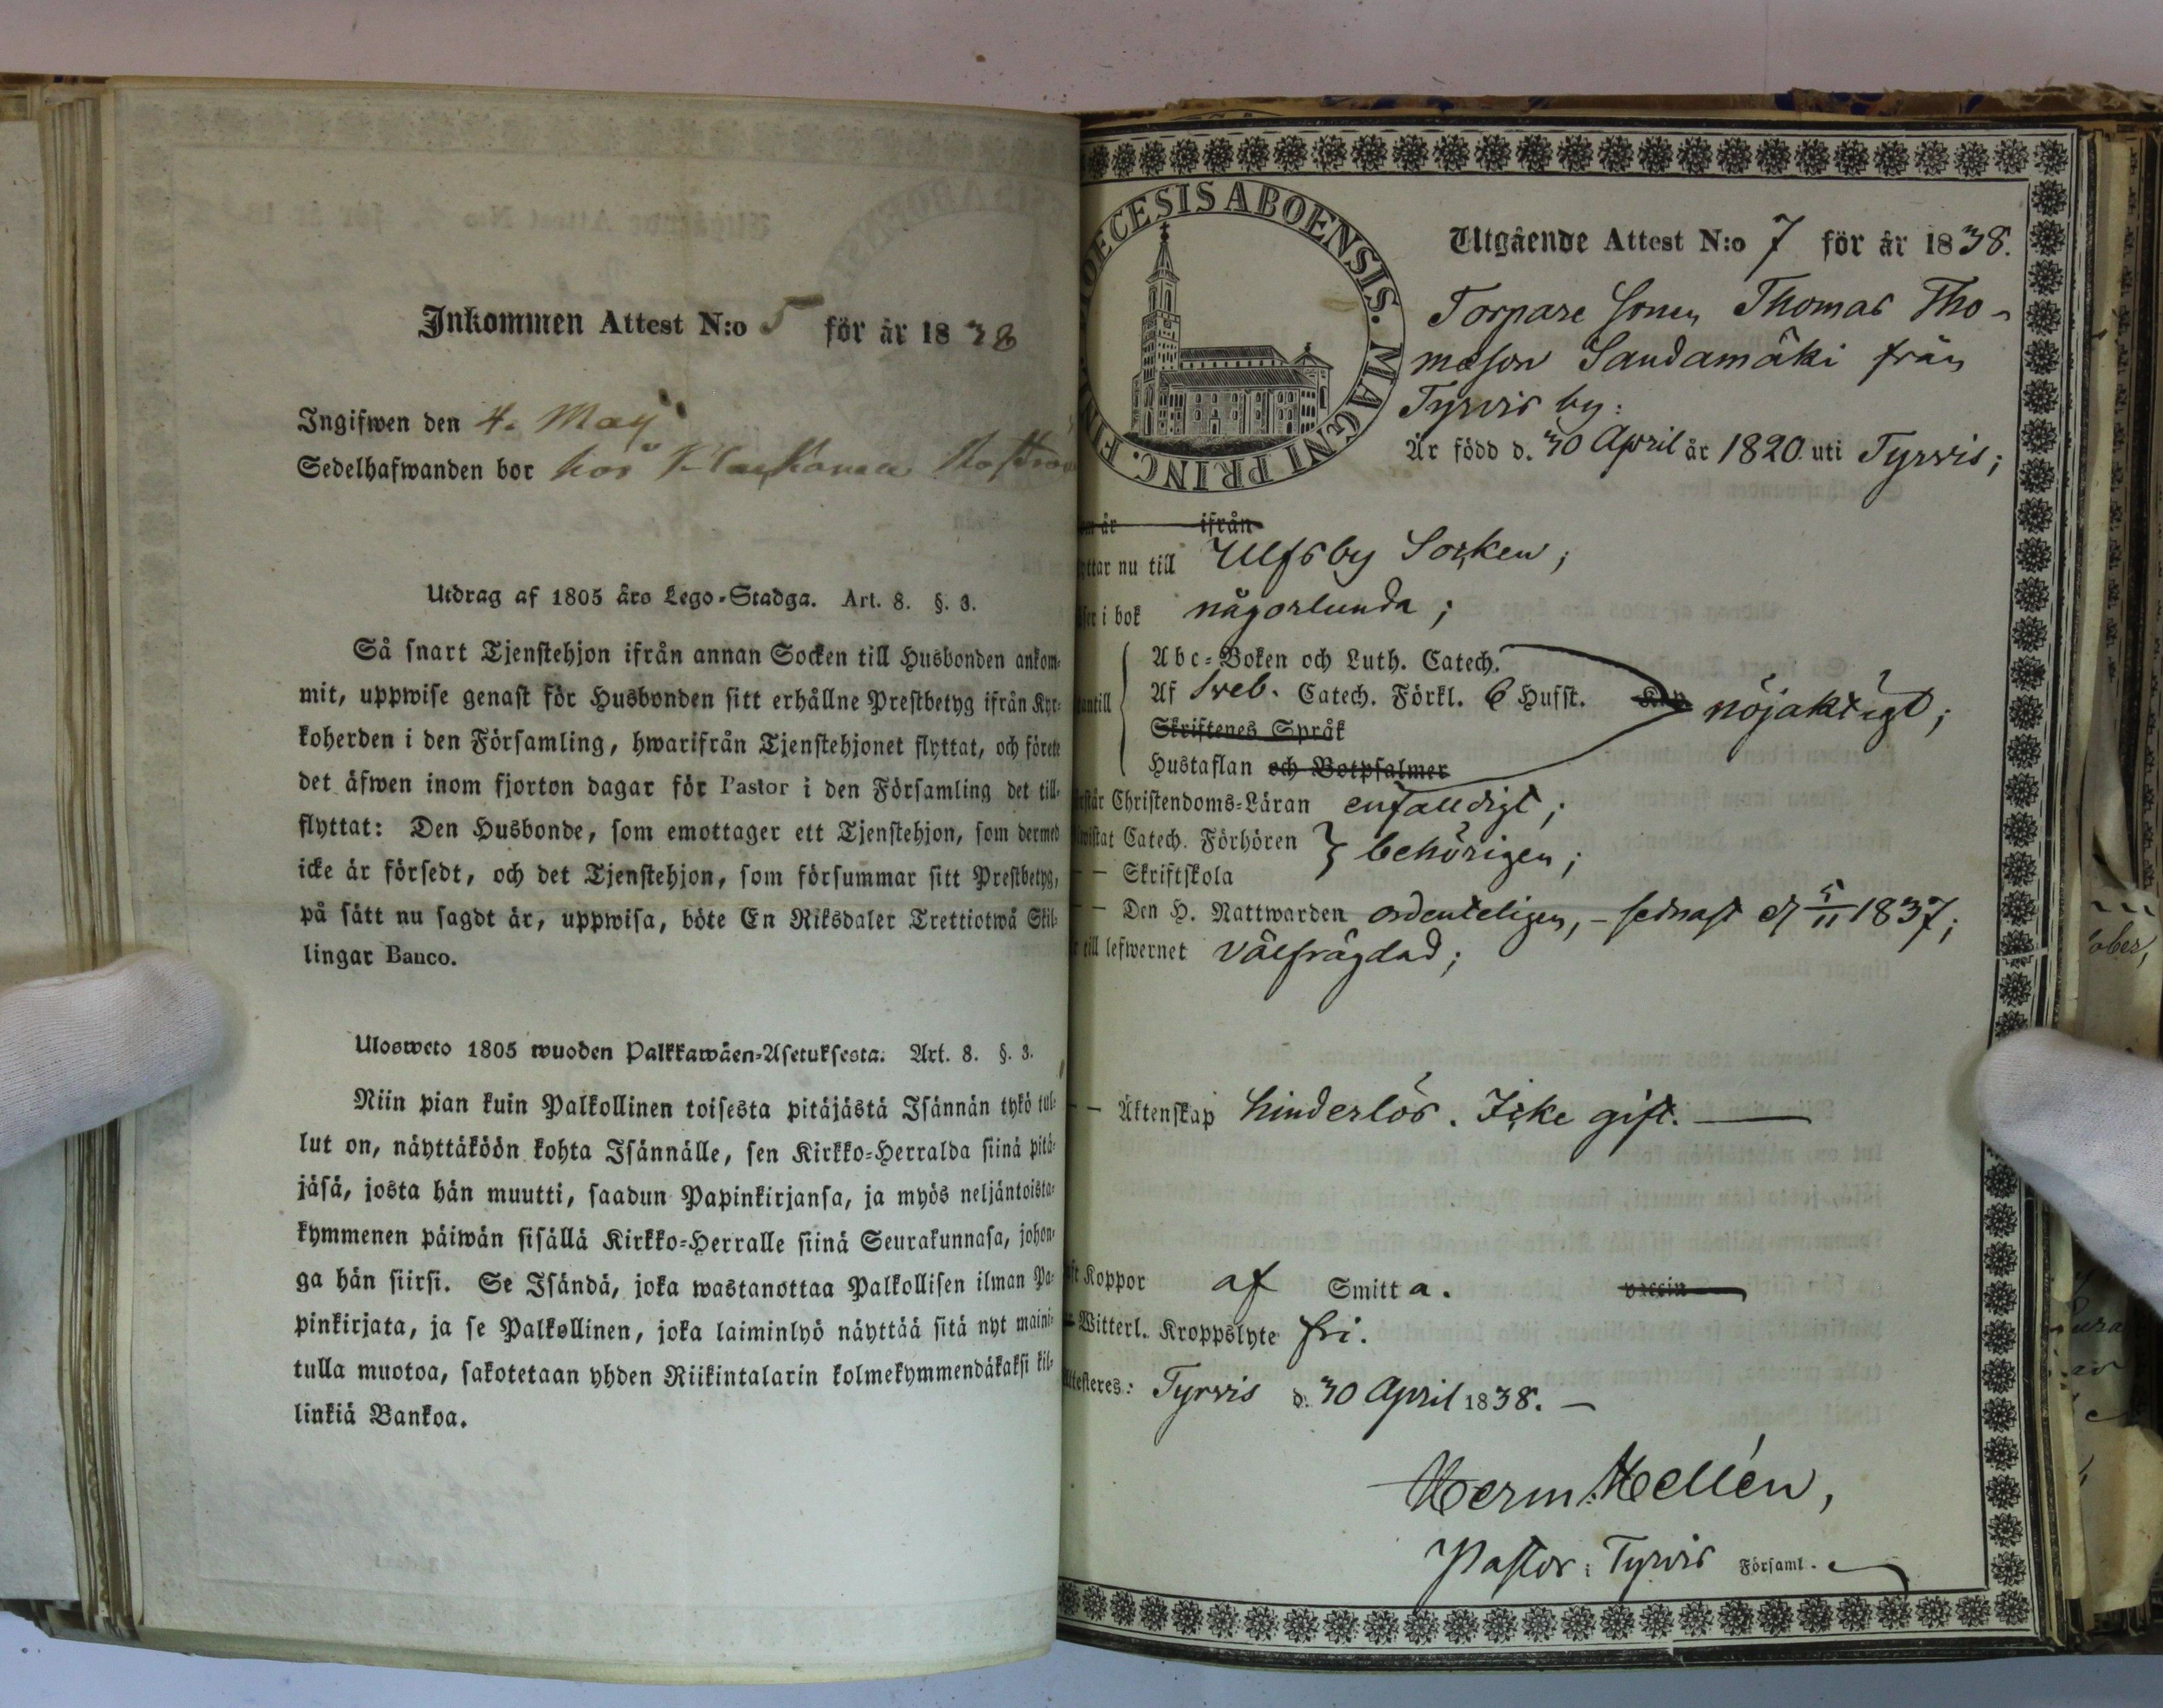 Inkommen Attest N:o 5 för år 1838
Ingifwen den 4. May
Sedelhafwanden bor hos
Utdrag af 1805 års Lego-Stadga. Art. 8. §. 3.
Så snart Tjenstehjon ifrån annan Socken till Husbonden ankom-
mit, uppwise genast för Husbonden sitt erhållne Prestbetyg ifrån Kyr-
koherden i den Församling, hwarifrån Tjenstehjonet flyttat, och förete
det äfwen inom fjorton dagar för Pastor i den Församling det till-
flyttat: Den Husbonde, som emottager ett Tjenstehjon, som dermed
icke är försedt, och det Tjenstehjon, som försummar sitt Prestbetyg,
på sätt nu sagdt är, uppwisa, böte En Riksdaler Trettiotwå Skil-
lingar Banco.
Ulosweto 1805 wuoden Palkkawäen-Asetuksesta. Art. 8. §. 3.
Niin pian kuin Palkollinen toisesta pitäjästä Isännän tykö tul-
lut on, näyttäköön kohta Isännälle, sen Kirkko-Herralda siinä pitä-
jäsä, josta hän muutti, saadun Papinkirjansa, ja myös neljäntoista-
kymmenen päiwän sisällä Kirkko-Herralle siinä Seurakunnasa, johon-
ga hän siirsi. Se Isändä, joka wastanottaa Palkollisen ilman Pa-
pinkirjata, ja se Palkollinen, joka laiminlyö näyttää sitä nyt maini-
tulla muotoa, sakotetaan yhden Riikintalarin kolmekymmendäkaksi kil-
linkiä Bankoa.
DIOECESIS ABOENSIS. MAGNI PRINC. FIN
Utgående Attest N:o 7 för år 1838.
Torpare sonen Thomas Tho-
masson Sandamäki från
Tyrvis by:
Är född d. 30 April år 1820 uti Tyrvis;
år ifrån
ttar nu till Ulfsby Socken;
ser i bok någorlunda;
Abc-Boken och Luth. Catech.
antill Af Sveb. Catech. Förkl. 6 Hufst. Kap nöjaktigt;
Skriftenes Språk
Hustaflan och Botpsalmer
rstår Christendoms-Läran enfalldigt;
wistat Catech. Förhören } behörigen;
- - Skriftskola
- - Den H. Nattwarden ordenteligen, - sednast d 5/11 1837;
r till lefwernet välfrägdad;
- - Äktenskap hinderlös. Icke gift. -
ft Koppor af Smitta. vaccin
Witterl. Kroppslyte fri.
Attesteres: Tyrvis d. 30 April 1838. -
Herm. Hellén,
Pastor i Tyrvis Församl.